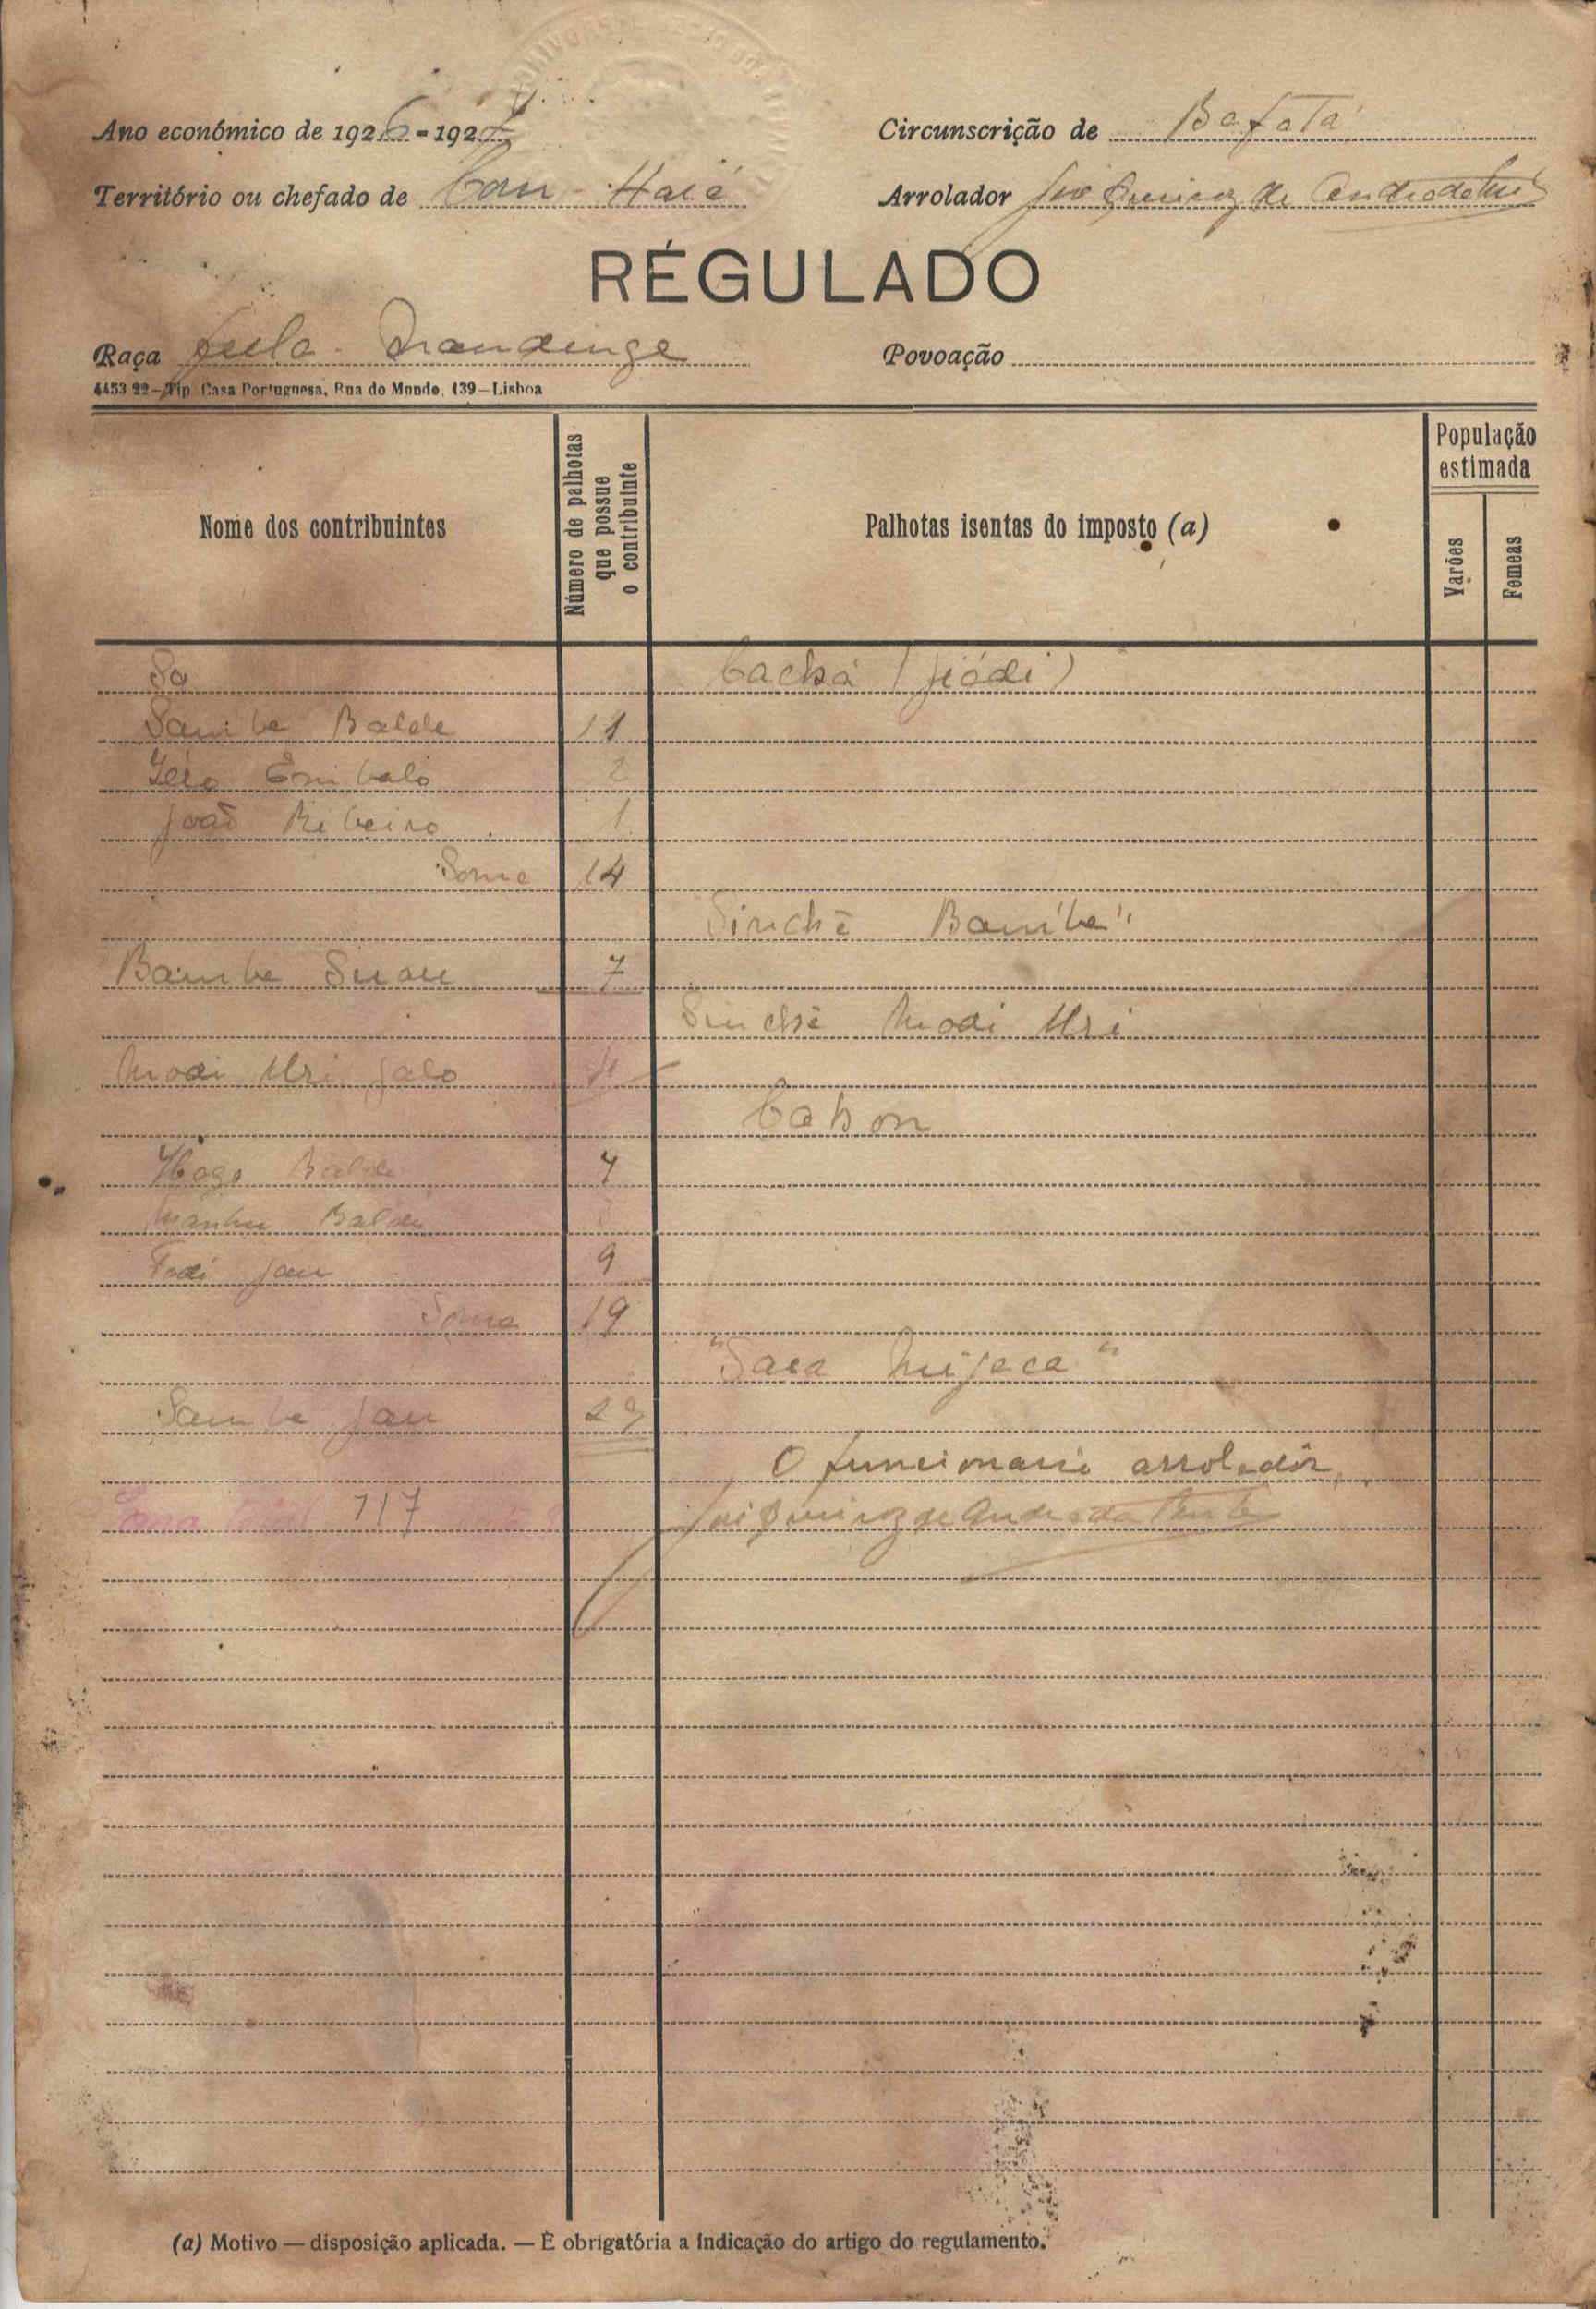 Ano económico de 1926-1927
Circunscrição de Bafatá
Território ou chefado de Can-Haié
Arrolador José Queiroz de Andrade
RÉGULADO
Raça Fula-Mandinga
Povoação
4453 22—Tip. Casa Portuguesa, Rua do Mundo, 139—Lisboa
Nome dos contribuintes
Número de palhotas que possue o contribuinte
Palhotas isentas do imposto (a)
População estimada
Varões
Femeas
Sa
Cachá (Jiódi)
Samba Balde 11
Iéro Embaló 2
João Ribeiro 1
Soma 14
"Sinchã Bambe"
Bambe Suou 7
Sinchã Modi Uri
Modi Uri Jaló 4
Cabon
Balde 7
Balde 3
Fodi Jau 9
Soma 19
"Sara"
Samba Jau 29
O funcionario arrolador,
Soma total 717
José Queiroz de Andrade
(a) Motivo — disposição aplicada. — É obrigatória a indicação do artigo do regulamento.